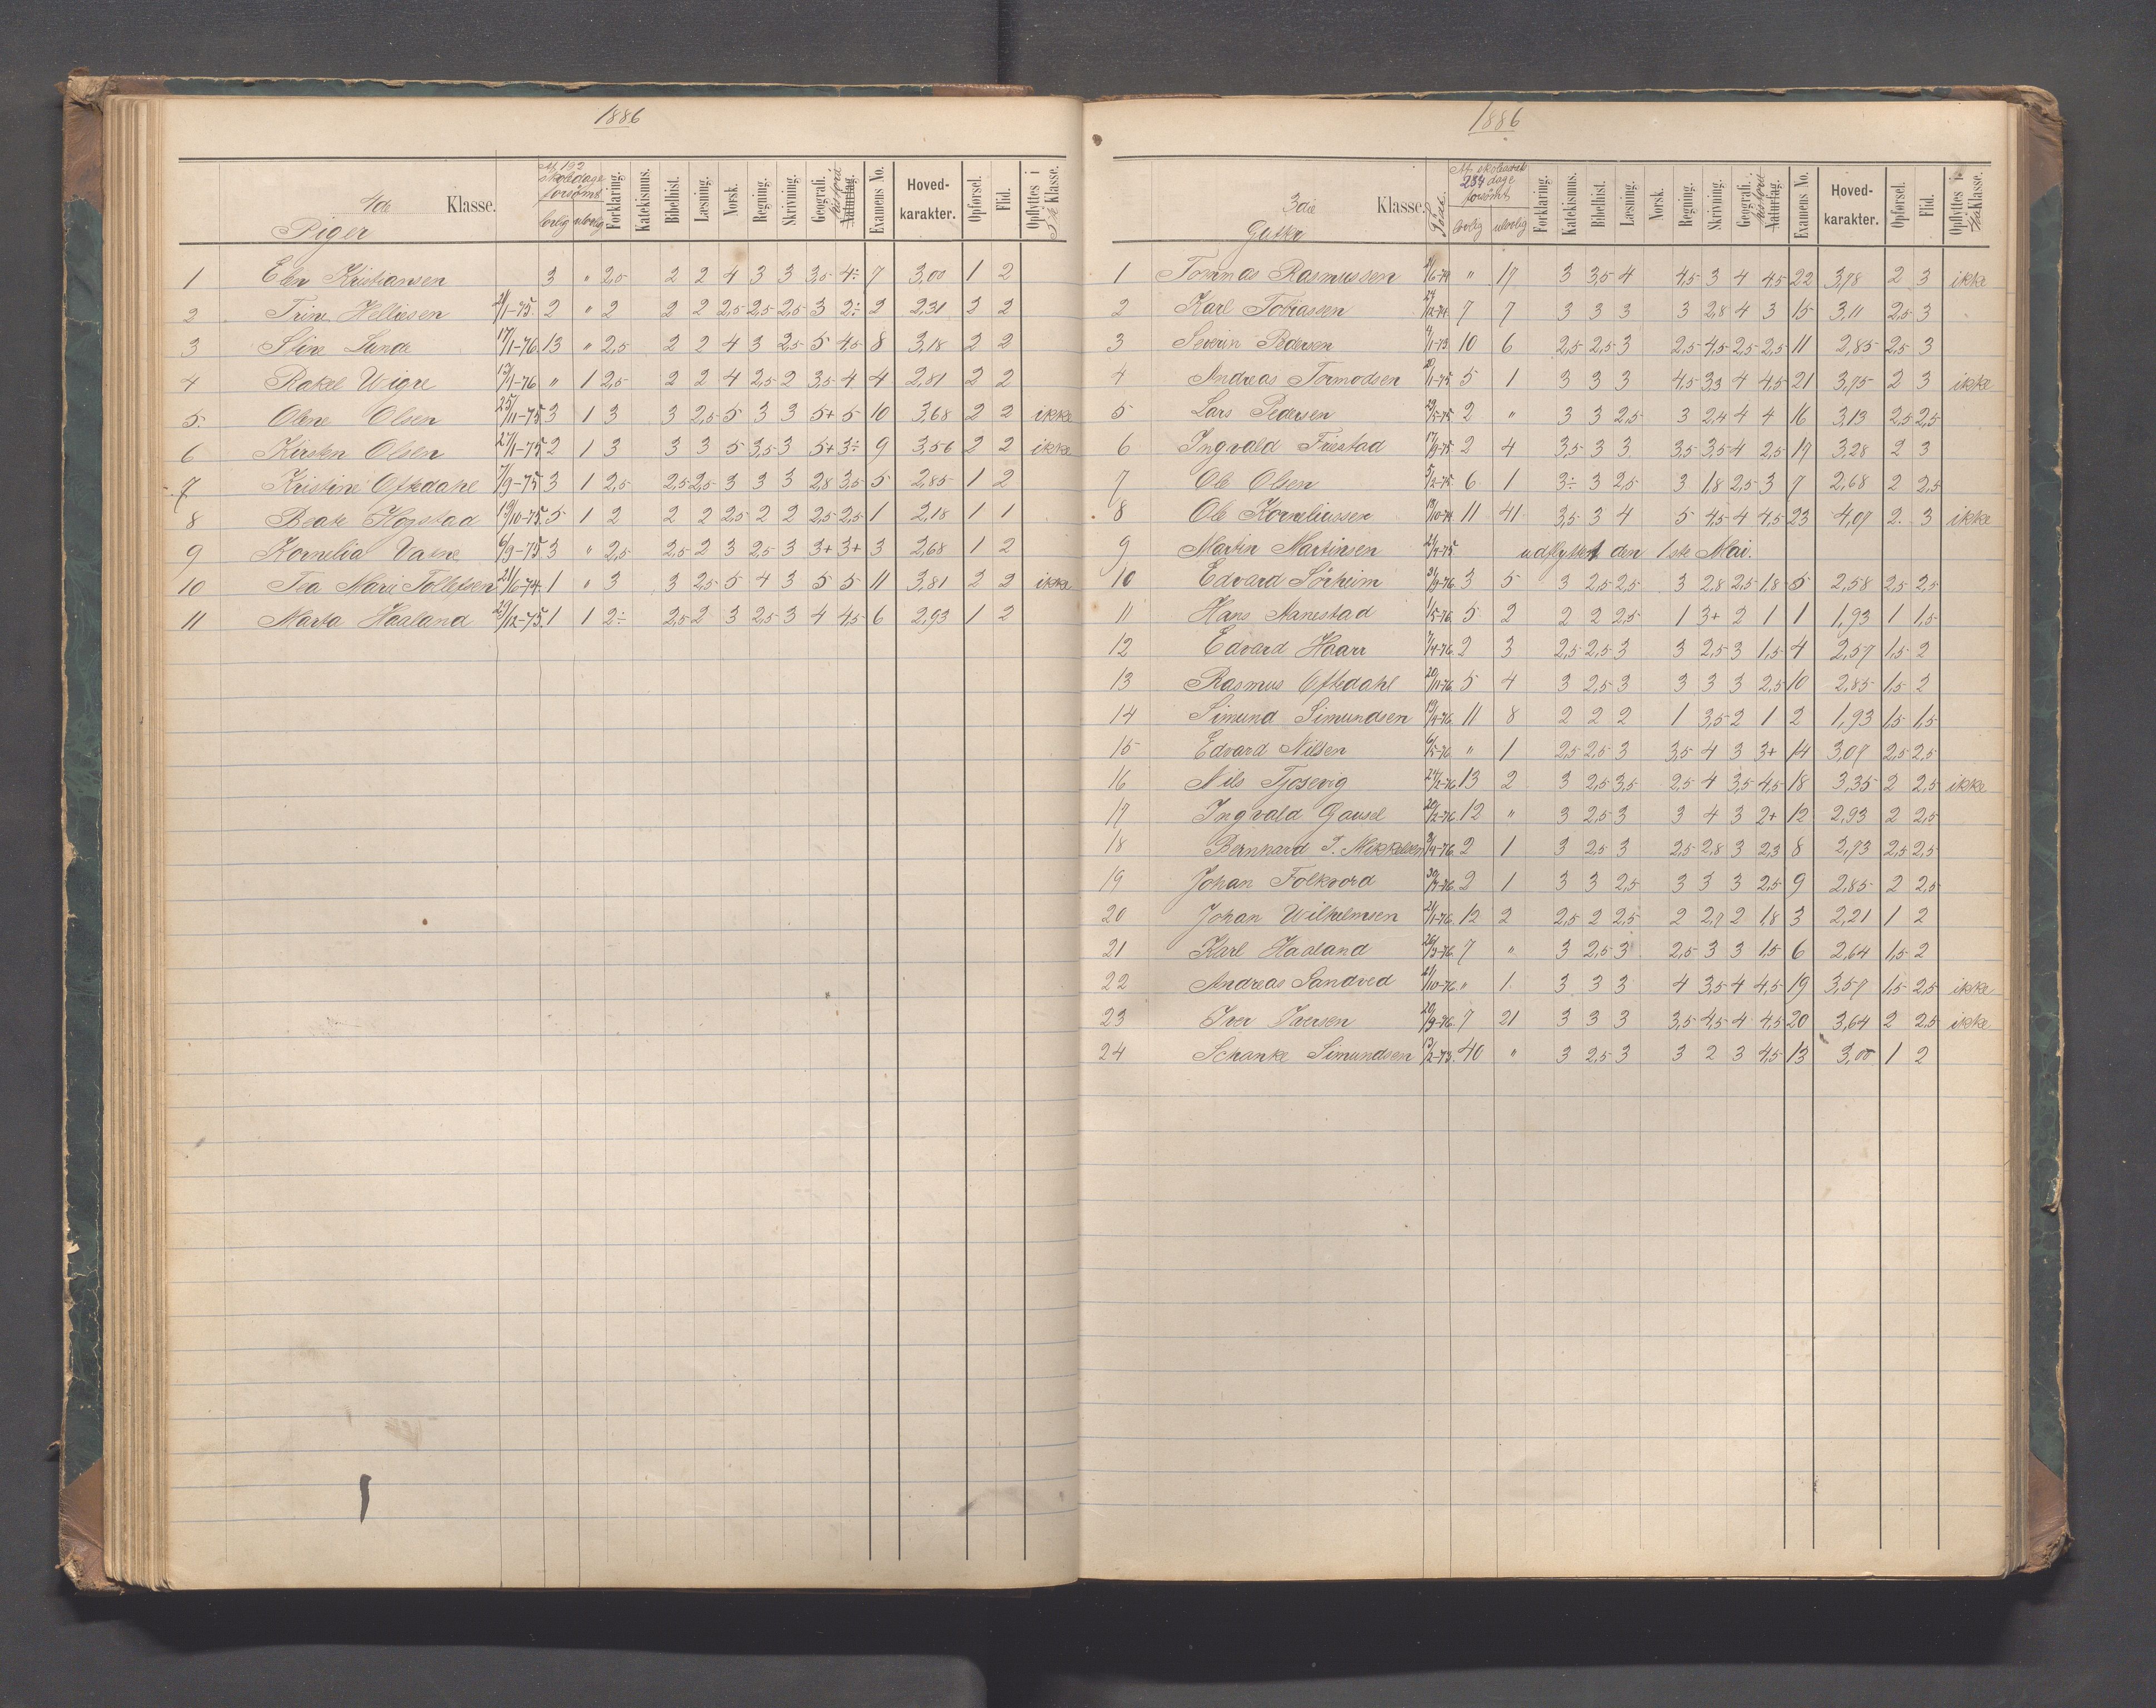 1886
4de Klasse.
Piger
Af 192 skoledage forsømt
lovlig ulovlig
Forklaring. Katekismus. Bibelhist. Læsning. Norsk. Regning. Skrivning. Geografi. historie Naturfag. Examens No. Hoved-karakter. Opførsel. Flid. Opflyttes i 5te Klasse.
1 Elen Kristiansen 3 " 2,5 2 2 4 3 3 3,5 4÷ 7 3,00 1 2
2 Trine Helliesen 2 " 2 2 2 2,5 2,5 2,5 3 2÷ 2 2,31 2 2
3 Stine Lunde 17/1-76. 13 " 2,5 2 2 4 3 2,5 5 4,5 8 3,18 2 2
4 Rakel Wigre 13/1-76 " 1 2,5 2 2 4 2,5 2 3,5 4 4 2,81 2 2
5 Olene Olsen 25/11-75 3 1 3 3 2,5 5 3 3 5+ 5 10 3,68 2 2 ikke
6 Kirsten Olsen 27/1-75 2 1 3 3 3 5 3,5 3 5+ 3÷ 9 3,56 2 2 ikke
7 Kristine Oftedahl 7/9-75 3 1 2,5 2,5 2,5 3 3 3 2,8 3,5 5 2,85 1 2
8 Beate Hogstad 19/10-75. 5 1 2 2 2 2,5 2 2 2,5 2,5 1 2,18 1 1
9 Kornelia Vatne 6/9-75 3 " 2,5 2,5 2 3 2,5 3 3+ 3+ 3 2,68 1 2
10 Marie Tollefsen 21/6-74. 1 " 3 3 2,5 5 4 3 5 5 11 3,81 2 2 ikke
11 Marta Haaland 29/12-75. 1 1 2÷ 2,5 2 3 2,5 3 4 4,5 6 2,93 1 2
1886
3die Klasse.
Gutter
Født.
Af skoleaarets 234 dage forsømt
lovlig ulovlig
Forklaring. Katekismus. Bibelhist. Læsning. Norsk. Regning. Skrivning. Geografi. historie Naturfag. Examens No. Hoved-karakter. Opførsel. Flid. Opflyttes i 4de Klasse.
1 Tommas Rasmussen " 17 3 3,5 4 4,5 3 4 4,5 22 3,78 2 3 ikke
2 Karl Tobiassen 24/12-74. 7 7 3 3 3 3 2,8 4 3 15 3,11 2,5 3
3 Severin Pedersen 10 6 2,5 2,5 3 2,5 4,5 2,5 2,5 11 2,85 2,5 3
4 Andreas Tormodsen 5 1 3 3 3 4,5 3,3 4 4,5 21 3,75 2 3 ikke
5 Lars Pedersen 2 " 3 3 2,5 3 2,4 4 4 16 3,13 2,5 2,5
6 Ingvald Friestad 17/9-75 2 4 3,5 3 3 3,5 3,5 4 2,5 17 3,28 2 3
7 Ole Olsen 5/2-75. 6 1 3÷ 3 2,5 3 1,8 2,5 3 7 2,68 2 2,5
8 Ole Korneliussen 19/10-74. 11 41 3,5 3 4 5 4,5 4 4,5 23 4,07 2. 3 ikke
9 Martin Martinsen udflyttet den 1ste Mai.
10 Edvard Sørheim 3 5 3 2,5 2,5 3 2,8 2,5 1,8 5 2,58 2,5 2,5
11 Hans Nanestad 1/5-76. 5 2 2 2 2,5 1 3+ 2 1 1 1,93 1 1,5
12 Edvard Haarr 7/4-76. 2 3 2,5 2,5 3 3 2,5 3 1,5 4 2,57 1,5 2
13 Rasmus Oftedahl 20/11-76. 5 4 3 2,5 3 3 3 3 2,5 10 2,85 1,5 2
14 Simund Simundsen 11 8 2 2 2 1 3,5 2 1 2 1,93 1,5 1,5
15 Edvard Nilsen 6/5-76 " 1 2,5 2,5 3 3,5 4 3 3+ 14 3,07 2,5 2,5
16 Nils Tjosevig 24/12-76. 13 2 3 2,5 3,5 2,5 4 3,5 4,5 18 3,35 2 2,5 ikke
17 Ingvald Gausel 20/12-76. 12 " 3 2,5 3 3 4 3 2+ 12 2,93 2 2,5
18 Bernhard T. Mikkelsen 2 1 3 2,5 3 2,5 2,8 3 2,3 8 2,73 2,5 2,5
19 Johan Folkvord 2 1 3 3 2,5 3 3 3 2,5 9 2,85 2 2,5
20 Johan Wilhelmsen 21/11-76. 12 2 2,5 2 2,5 2 2,7 2 1,8 3 2,21 1 2
21 Karl Haaland 26/3-76. 7 " 3 2,5 3 2,5 3 3 1,5 6 2,64 1,5 2
22 Andreas Sandved 21/10-76. " 1. 3 3 3 4 3,5 4 4,5 19 3,57 1,5 2,5 ikke
23 Iver Iversen 20/9-76. 7 21 3 3 3 3,5 4,5 4 4,5 20 3,64 2 2,5 ikke
24 Schanke Simundsen 13/2-73. 40 " 3 2,5 3 3 2 3 4,5 13 3,00 1 2